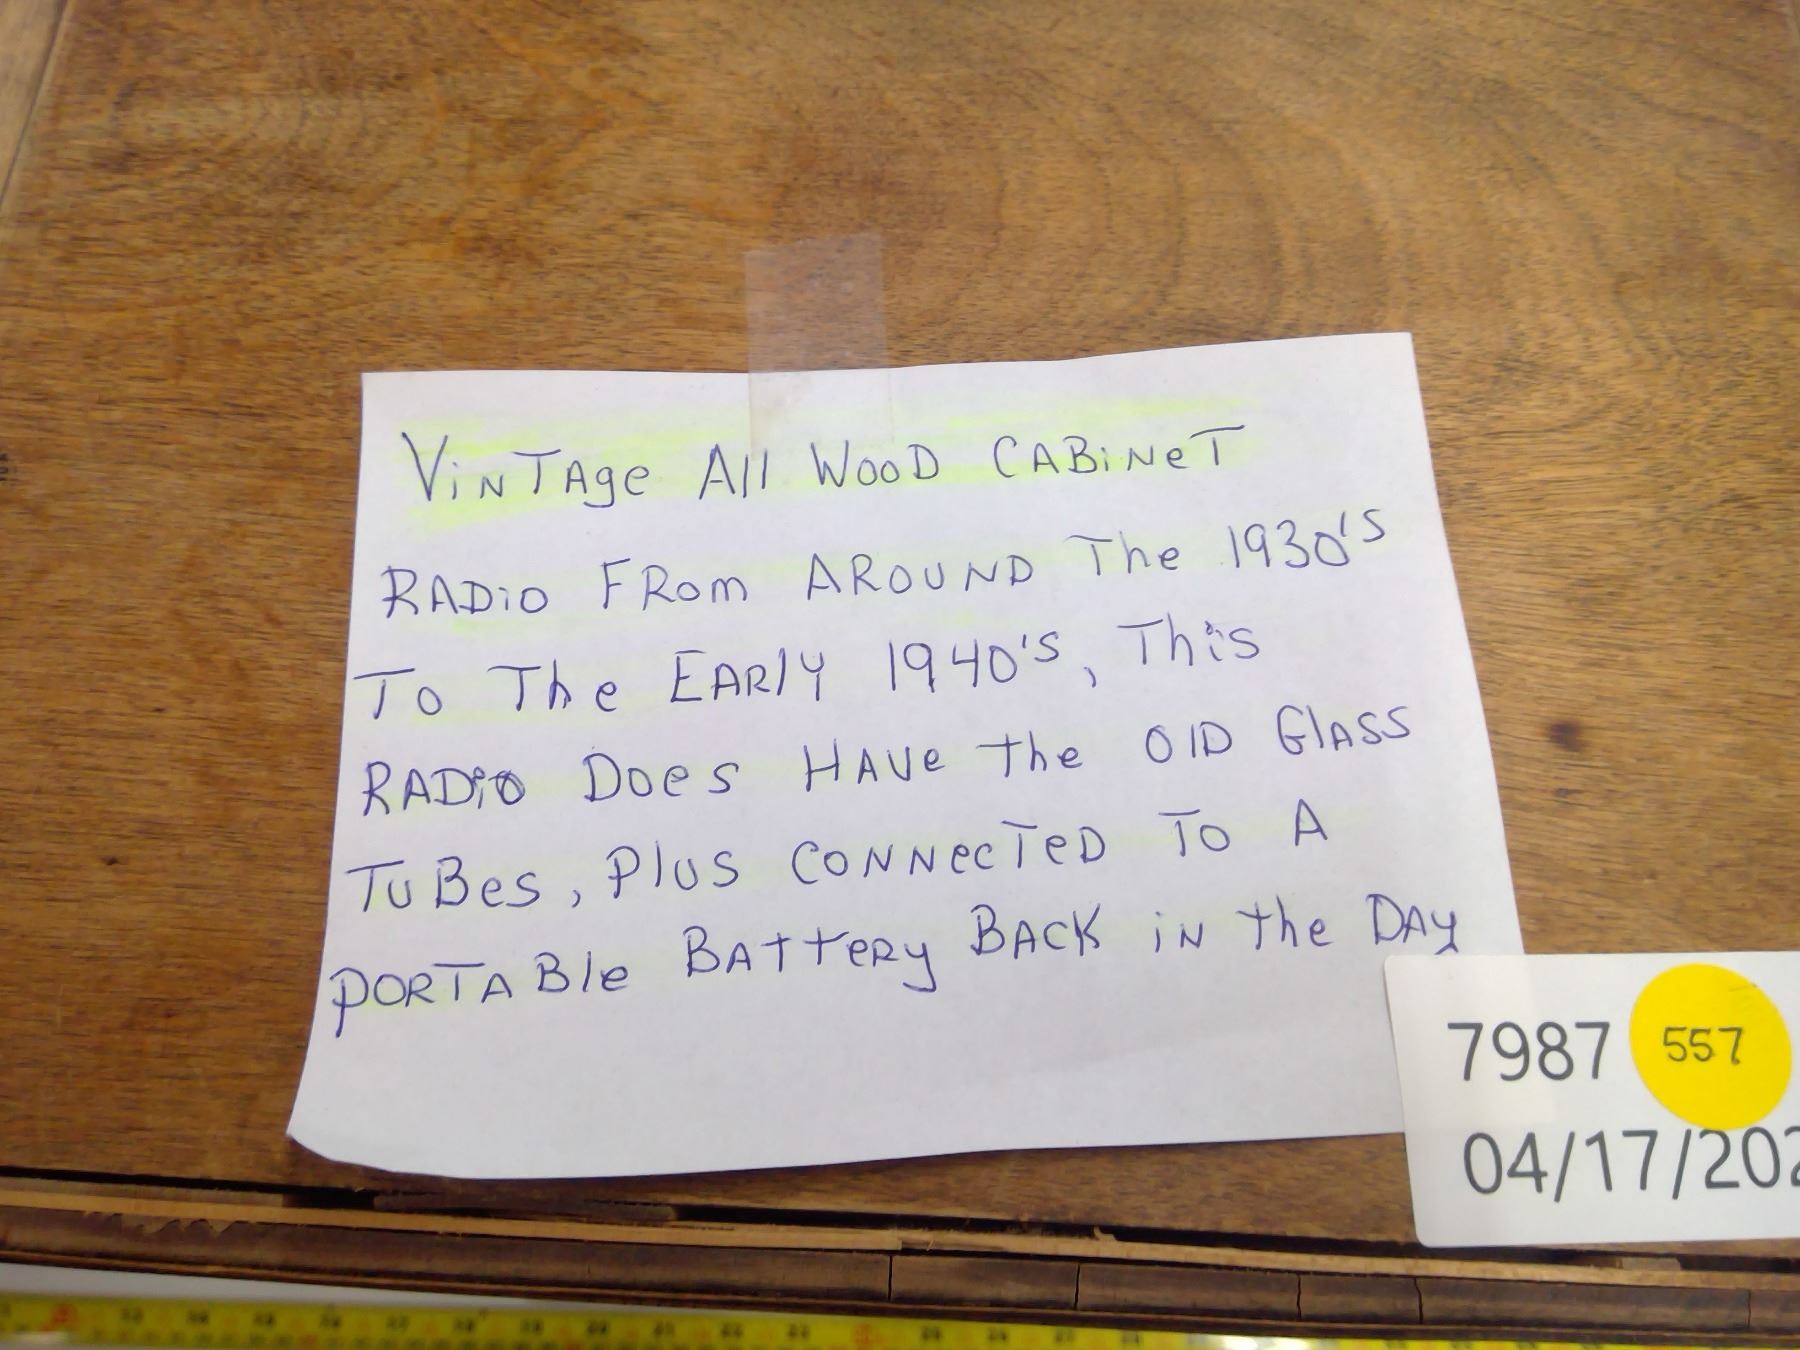 VINTAge All WOOD CABiNeT
RADiO FROm AROUND The 1930'S
TO The EARly 1940'S, This
RADiO DOes HAVe the OlD GlASS
TUBes, PlUS CONNecTeD TO A
PORTABle BAtteRy BACK iN the DAy
7987 557
04/17/202